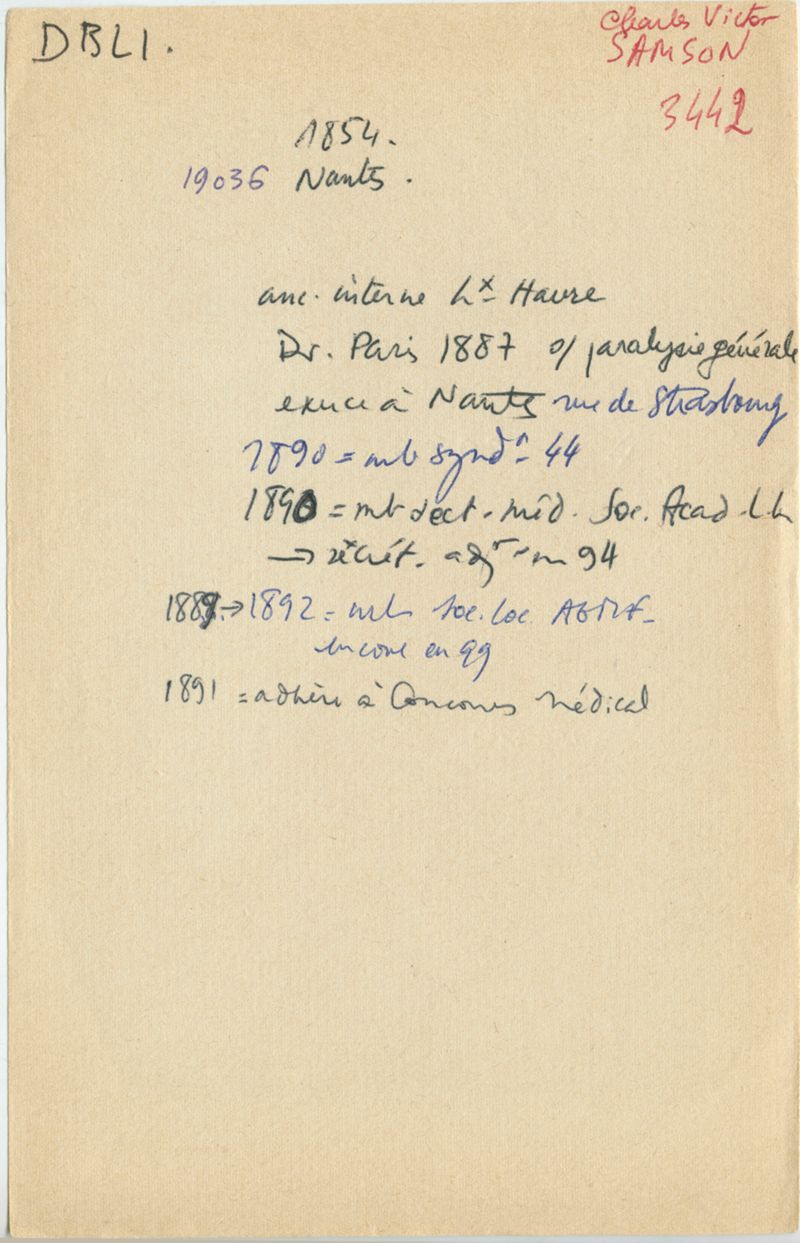 DBLI.
Charles Victor
SAMSON
3442
1854.
19036 Nantes.
anc. interne hx Havre
Dr. Paris 1887 s/ paralysie générale
exerce à Nantes rue de Strasbourg
1890 = mb synd 44
1890 = mb sect. méd. Soc. Acad. L.I.
→ secrét. adjt en 94
1889.→1892 = mb Soc. loc. AGMF
encore en 99
1891 = adhère à Concours Médical